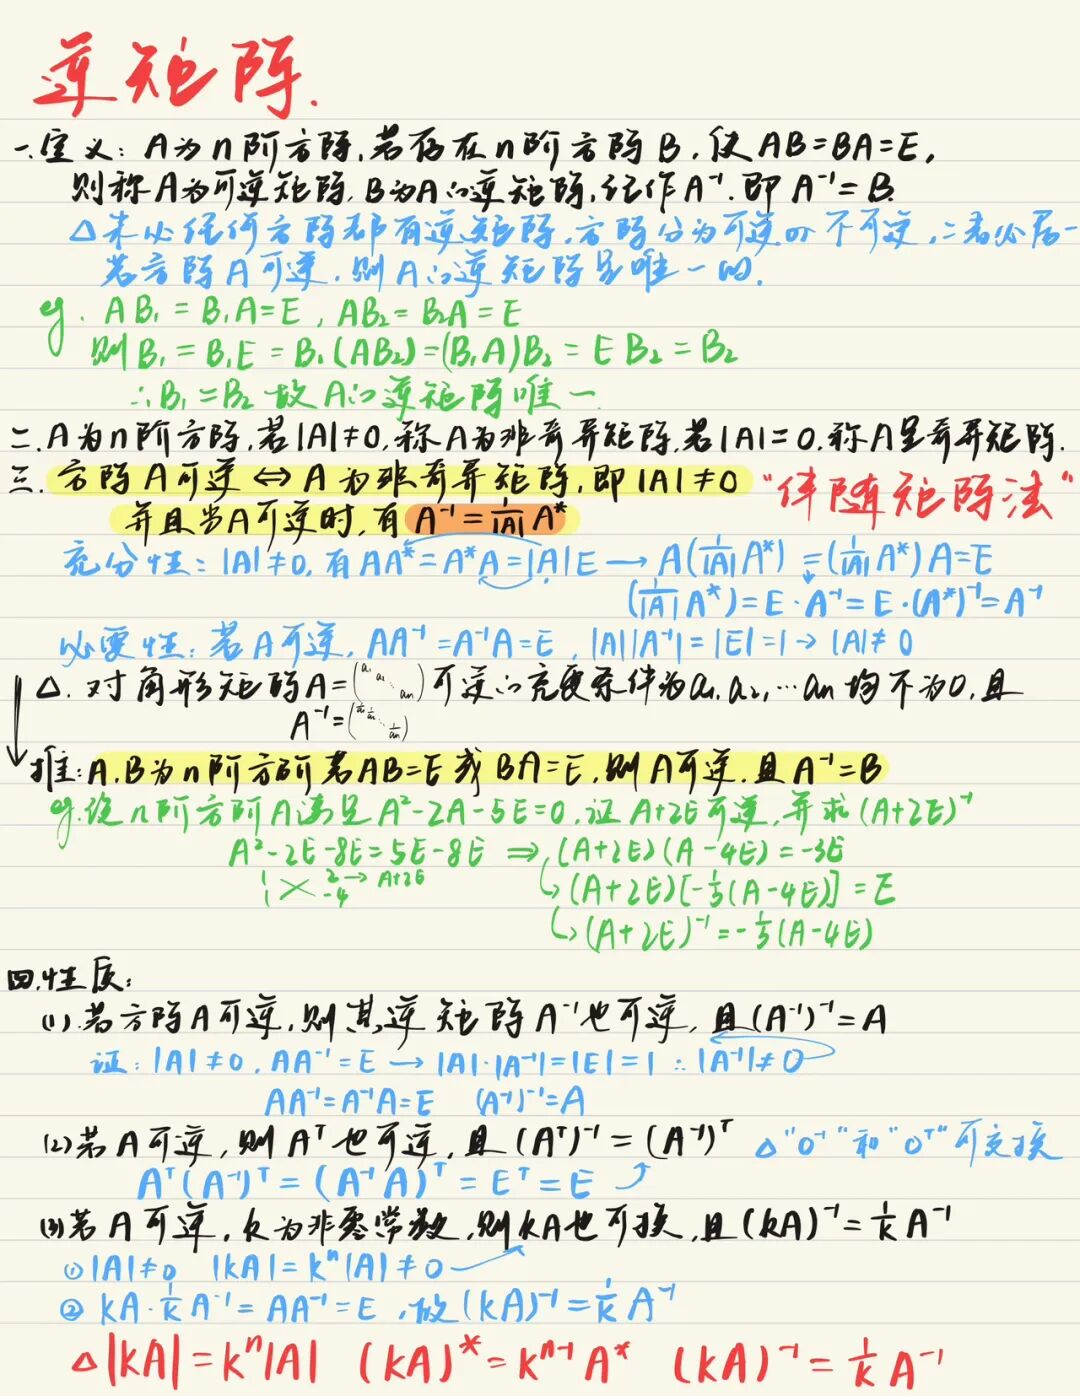 逆矩阵.
一.定义: A为n阶方阵,若存在n阶方阵B,使AB=BA=E,
则称A为可逆矩阵,B为A的逆矩阵,记作A⁻¹.即A⁻¹=B.
△未必任何方阵都有逆矩阵,方阵分为可逆的不可逆,二者必居一
若方阵A可逆,则A的逆矩阵是唯一的.
eg. AB₁=B₁A=E, AB₂=B₂A=E
则B₁=B₁E=B₁(AB₂)=(B₁A)B₂=EB₂=B₂
∴B₁=B₂ 故A的逆矩阵唯一
二.A为n阶方阵,若|A|≠0,称A为非奇异矩阵,若|A|=0,称A是奇异矩阵.
三.方阵A可逆⇔A为非奇异矩阵,即|A|≠0 "伴随矩阵法"
并且当A可逆时,有A⁻¹=1/|A| A*
充分性: |A|≠0,有AA*=A*A=|A|E→A(1/|A| A*)=(1/|A| A*)A=E
(1/|A| A*)=E·A⁻¹=E·(A*)⁻¹=A⁻¹
必要性: 若A可逆, AA⁻¹=A⁻¹A=E, |A||A⁻¹|=|E|=1→|A|≠0
△.对角形矩阵A=(a₁ a₂ ⋱ aₙ)可逆的充要条件为a₁,a₂,⋯aₙ均不为0,且
A⁻¹=(1/a₁ 1/a₂ ⋱ 1/aₙ)
推:A,B为n阶方阶若AB=E或BA=E,则A可逆,且A⁻¹=B
eg.设n阶方阶A满足A²-2A-5E=0,证A+2E可逆,并求(A+2E)⁻¹
A²-2E-8E=5E-8E ⇒ (A+2E)(A-4E)=-3E
1 2→A+2E
1 -4
(A+2E)[-1/3(A-4E)]=E
(A+2E)⁻¹=-1/3(A-4E)
四.性质:
(1).若方阵A可逆,则其逆矩阵A⁻¹也可逆,且(A⁻¹)⁻¹=A
证: |A|≠0, AA⁻¹=E→|A|·|A⁻¹|=|E|=1 ∴|A⁻¹|≠0
AA⁻¹=A⁻¹A=E (A⁻¹)⁻¹=A
(2)若A可逆,则Aᵀ也可逆,且(Aᵀ)⁻¹=(A⁻¹)ᵀ △"O⁻¹"和"Oᵀ"可交换
Aᵀ(A⁻¹)ᵀ=(A⁻¹A)ᵀ=Eᵀ=E
(3)若A可逆,k为非零常数,则kA也可换,且(kA)⁻¹=1/k A⁻¹
①|A|≠0 |kA|=kⁿ|A|≠0
②kA·1/k A⁻¹=AA⁻¹=E,故(kA)⁻¹=1/k A⁻¹
△|kA|=kⁿ|A| (kA)*=kⁿ⁻¹A* (kA)⁻¹=1/k A⁻¹